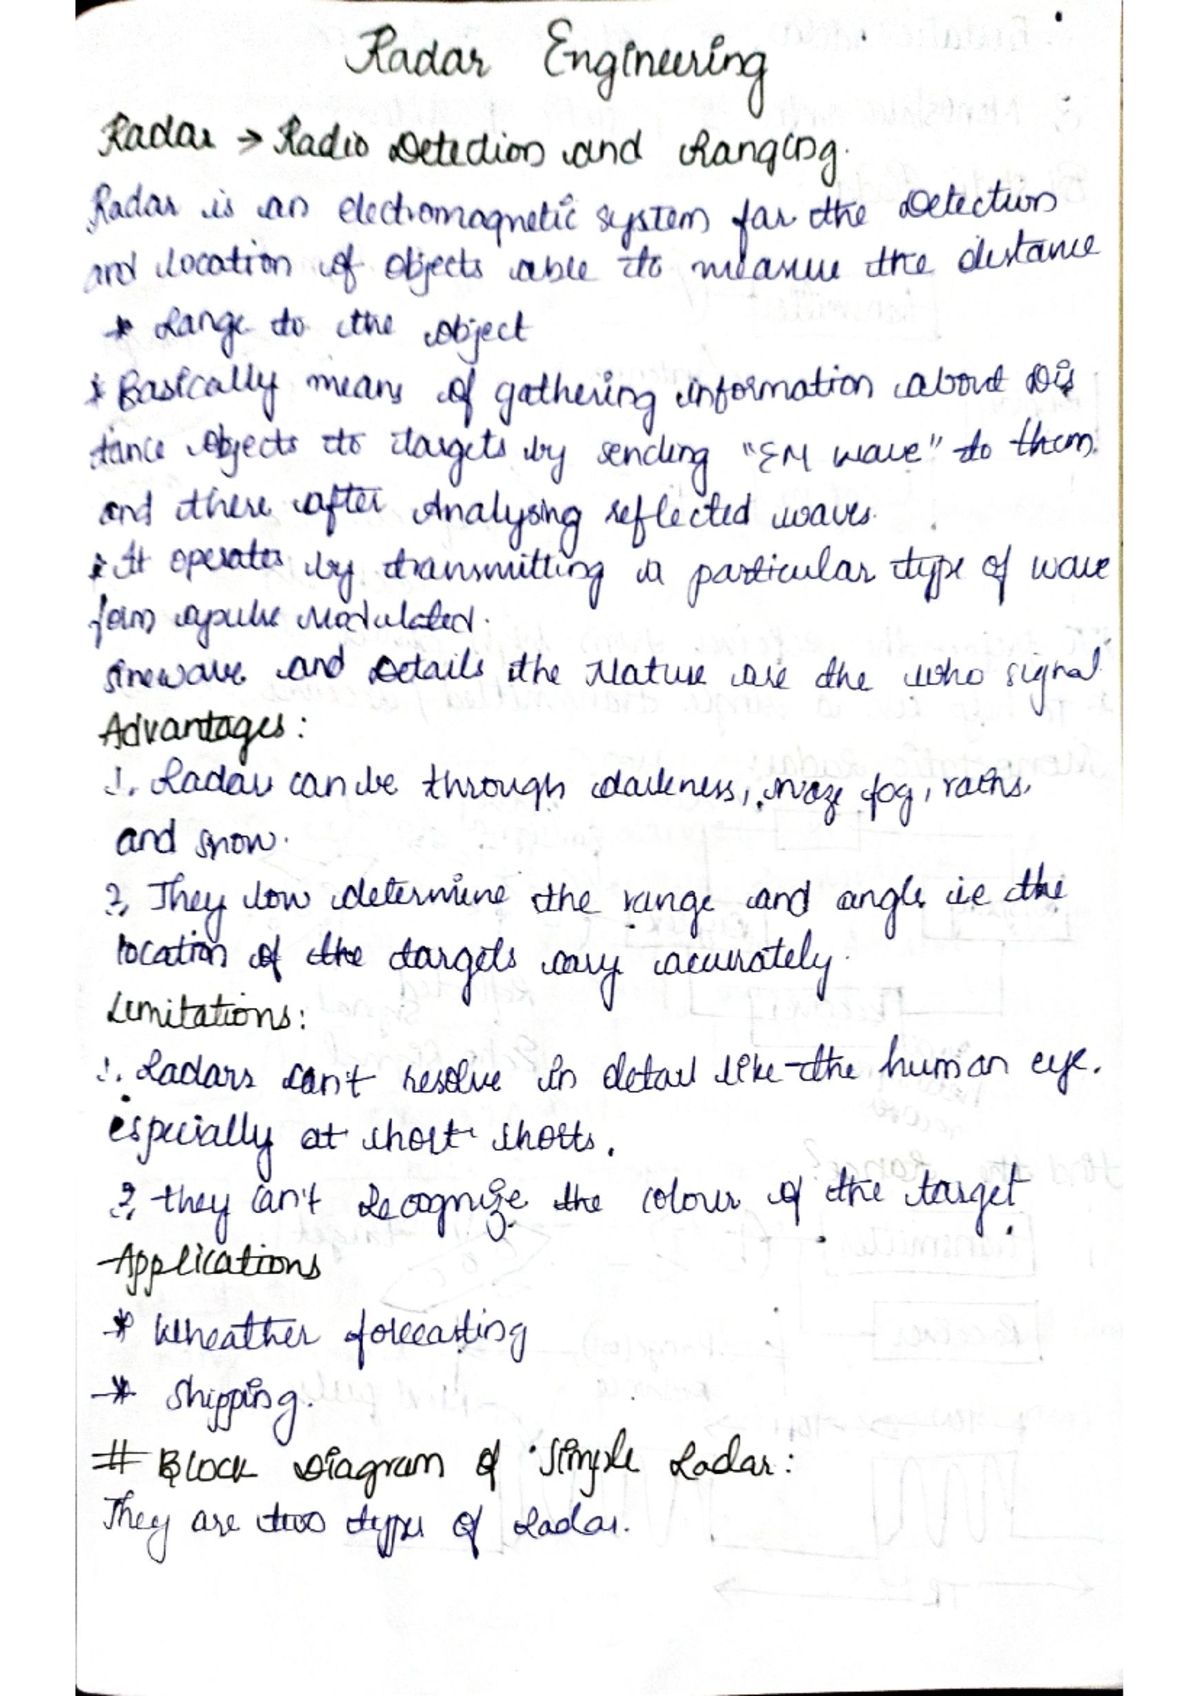 Radar Engineering
Radar → Radio Detection and Ranging.
Radar is an electromagnetic system for the Detection
and location of objects able to measure the distance
* Range to the object
* Basically means of gathering information about Dis
tance objects to targets by sending "EM wave" to them.
and there after Analysing reflected waves.
* It operates by transmitting a particular type of wave
form apulse Modulated.
sinewave and Details the Nature are the who signal
Advantages:
1. Radar can be through darkness, fog, rains,
and snow.
2. They low determine the range and angle ie the
location of the targets vary accurately.
Limitations:
1. Radars can't resolve in detail like the human eye.
especially at short shorts.
2. they can't Recognize the colour of the target
Applications
* Wheather forecasting
* Shipping.
# Block Diagram of Simple Radar:
They are two types of Radar.